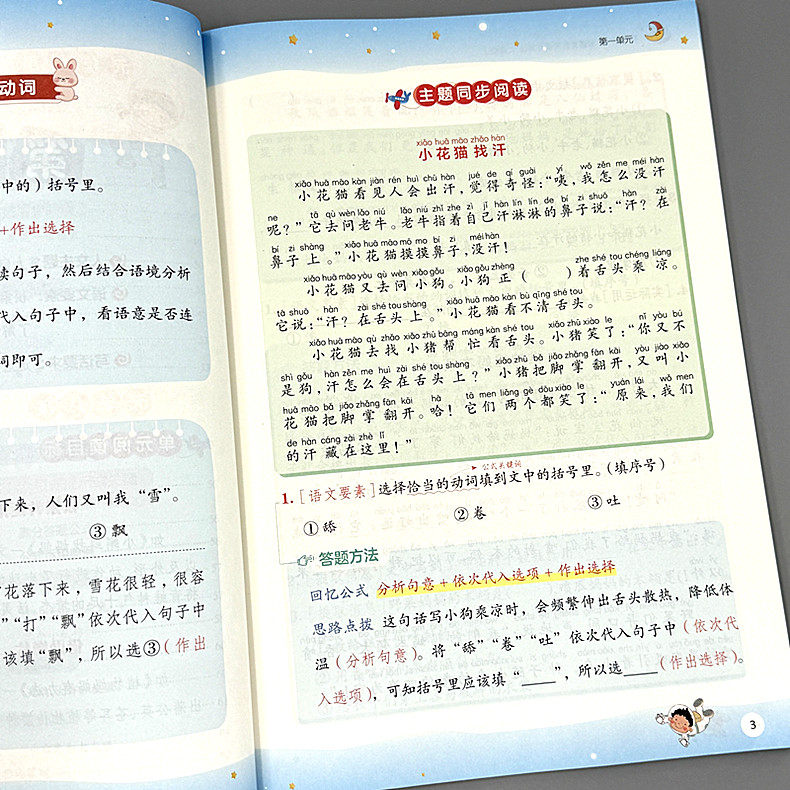 动词
中的）括号里。
+作出选择
读句子，然后结合语境分析
代入句子中，看语意是否连
词即可。
下来，人们又叫我“雪”。
③ 飘
花落下来，雪花很轻，很容
”“打”“飘”依次代入句子中
该填“飘”，所以选③（作出
第一单元
主题同步阅读
xiǎo huā māo zhǎo hàn
小花猫找汗
xiǎo huā māo kàn jiàn rén huì chū hàn jué de qí guài yí wǒ zěn me méi hàn
小花猫看见人会出汗，觉得奇怪：“咦，我怎么没汗
ne tā qù wèn lǎo niú lǎo niú zhǐ zhe zì jǐ hàn lín lín de bí zi shuō hàn zài
呢？”它去问老牛。老牛指着自己汗淋淋的鼻子说：“汗？在
bí zi shàng xiǎo huā māo mō mo bí zi méi hàn
鼻子上。”小花猫摸摸鼻子，没汗！
xiǎo huā māo yòu qù wèn xiǎo gǒu xiǎo gǒu zhèng zhe shé tou chéng liáng
小花猫又去问小狗。小狗正（ ）着舌头乘凉。
tā shuō hàn zài shé tou shàng xiǎo huā māo kàn bù qīng shé tou
它说：“汗？在舌头上。”小花猫看不清舌头。
xiǎo huā māo qù zhǎo xiǎo zhū bāng máng kàn shé tou xiǎo zhū xiào le nǐ yòu bú
小花猫去找小猪帮忙看舌头。小猪笑了：“你又不
shì gǒu hàn zěn me huì zài shé tou shàng xiǎo zhū bǎ jiǎo zhǎng fān kāi yòu jiào xiǎo
是狗，汗怎么会在舌头上？”小猪把脚掌翻开，又叫小
huā māo bǎ jiǎo zhǎng fān kāi hā tā men liǎng gè dōu xiào le yuán lái wǒ men
花猫把脚掌翻开。哈！它们两个都笑了：“原来，我们
de hàn cáng zài zhè lǐ
的汗藏在这里！”
公式关键词
1. [语文要素]选择恰当的动词填到文中的括号里。（填序号）
① 舔 ② 卷 ③ 吐
答题方法
回忆公式 分析句意+依次代入选项+作出选择
思路点拨 这句话写小狗乘凉时，会频繁伸出舌头散热，降低体
温（分析句意）。将“舔”“卷”“吐”依次代入句子中（依次代
入选项），可知括号里应该填“____”，所以选____（作出选择）。
3